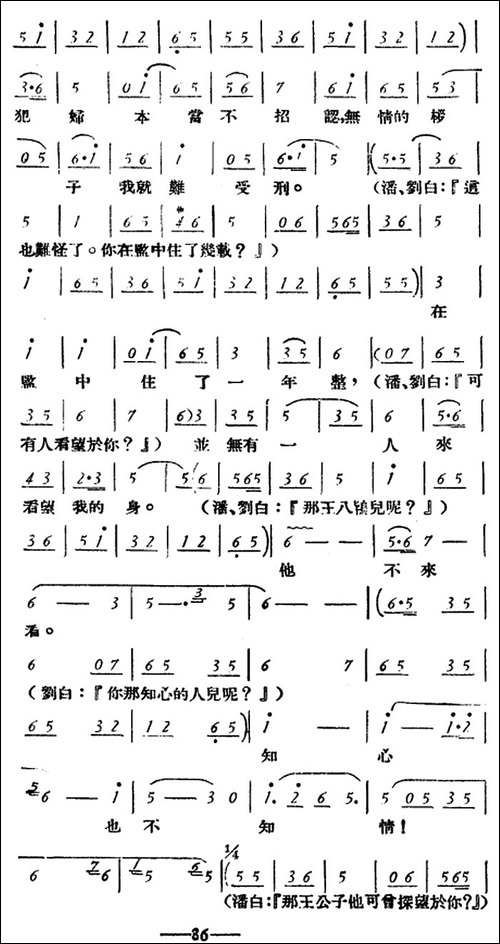 5 i | 3 2 | 1 2 | 6 5 | 5 5 | 3 6 | 5 i | 3 2 | 1 2 )|
3·6 | 5 | 0 i | 6 5 | 5 6 | 7 | 6 i | 6 5 | 5 3 |
犯 婦 本 當 不 招 認,無 情的 桚
0 5 | 6·i | 5 6 | i | 0 5 | 6·i | 5 |( 5·5 | 3 6 |
子 我就 難 受 刑。 (潘、劉白:『這
5 | 1 | 6 5 | 4 6 | 5 | 0 6 | 565 | 3 6 | 5 |
也難怪了。你在監中住了幾載?』)
i | 6 5 | 3 6 | 5 i | 3 2 | 1 2 | 6 5 | 5 5 )| 3
在
i | i | 0 i | 6 5 | 3 | 3 5 | 6 |( 0 7 | 6 5 |
監 中 住 了 一 年 整, (潘、劉白:『可
3 5 | 6 | 7 | 6)3 | 3 5 | 5 | 3 5 | 6 | 5·6 |
有人看望於你?』) 並 無有 一 人 來
4 3 | 2·3 | 5 | 5 6 | 565 | 3 6 | 5 | i | 6 5
看望 我的 身。 (潘、劉白:『那王八鴇兒呢?』)
3 6 | 5 i | 3 2 | 1 2 | 6 5 )‖ 6 — — | 5·6 7 — |
他 不 來
6 — 3 | 5 —· 3 5 | 6 — — |( 6·5 3 5 |
看。
6 0 7 | 6 5 3 5 | 6 7 | 6 5 3 5 |
(劉白:『你那知心的人兒呢?』)
6 5 3 2 | 1 2 6 5 )| i — | i — i·2 |
知 心
5 6 — i | 5 — 3 0 | i. 2 6 5. | 5 0 5 3 5 |
也 不 知 情!
6 7 6 | 1 5 6 5 |( 1/4 5 5 | 3 6 | 5 | 0 6 | 565 |
(潘白:『那王公子他可曾探望於你?』)
—86—